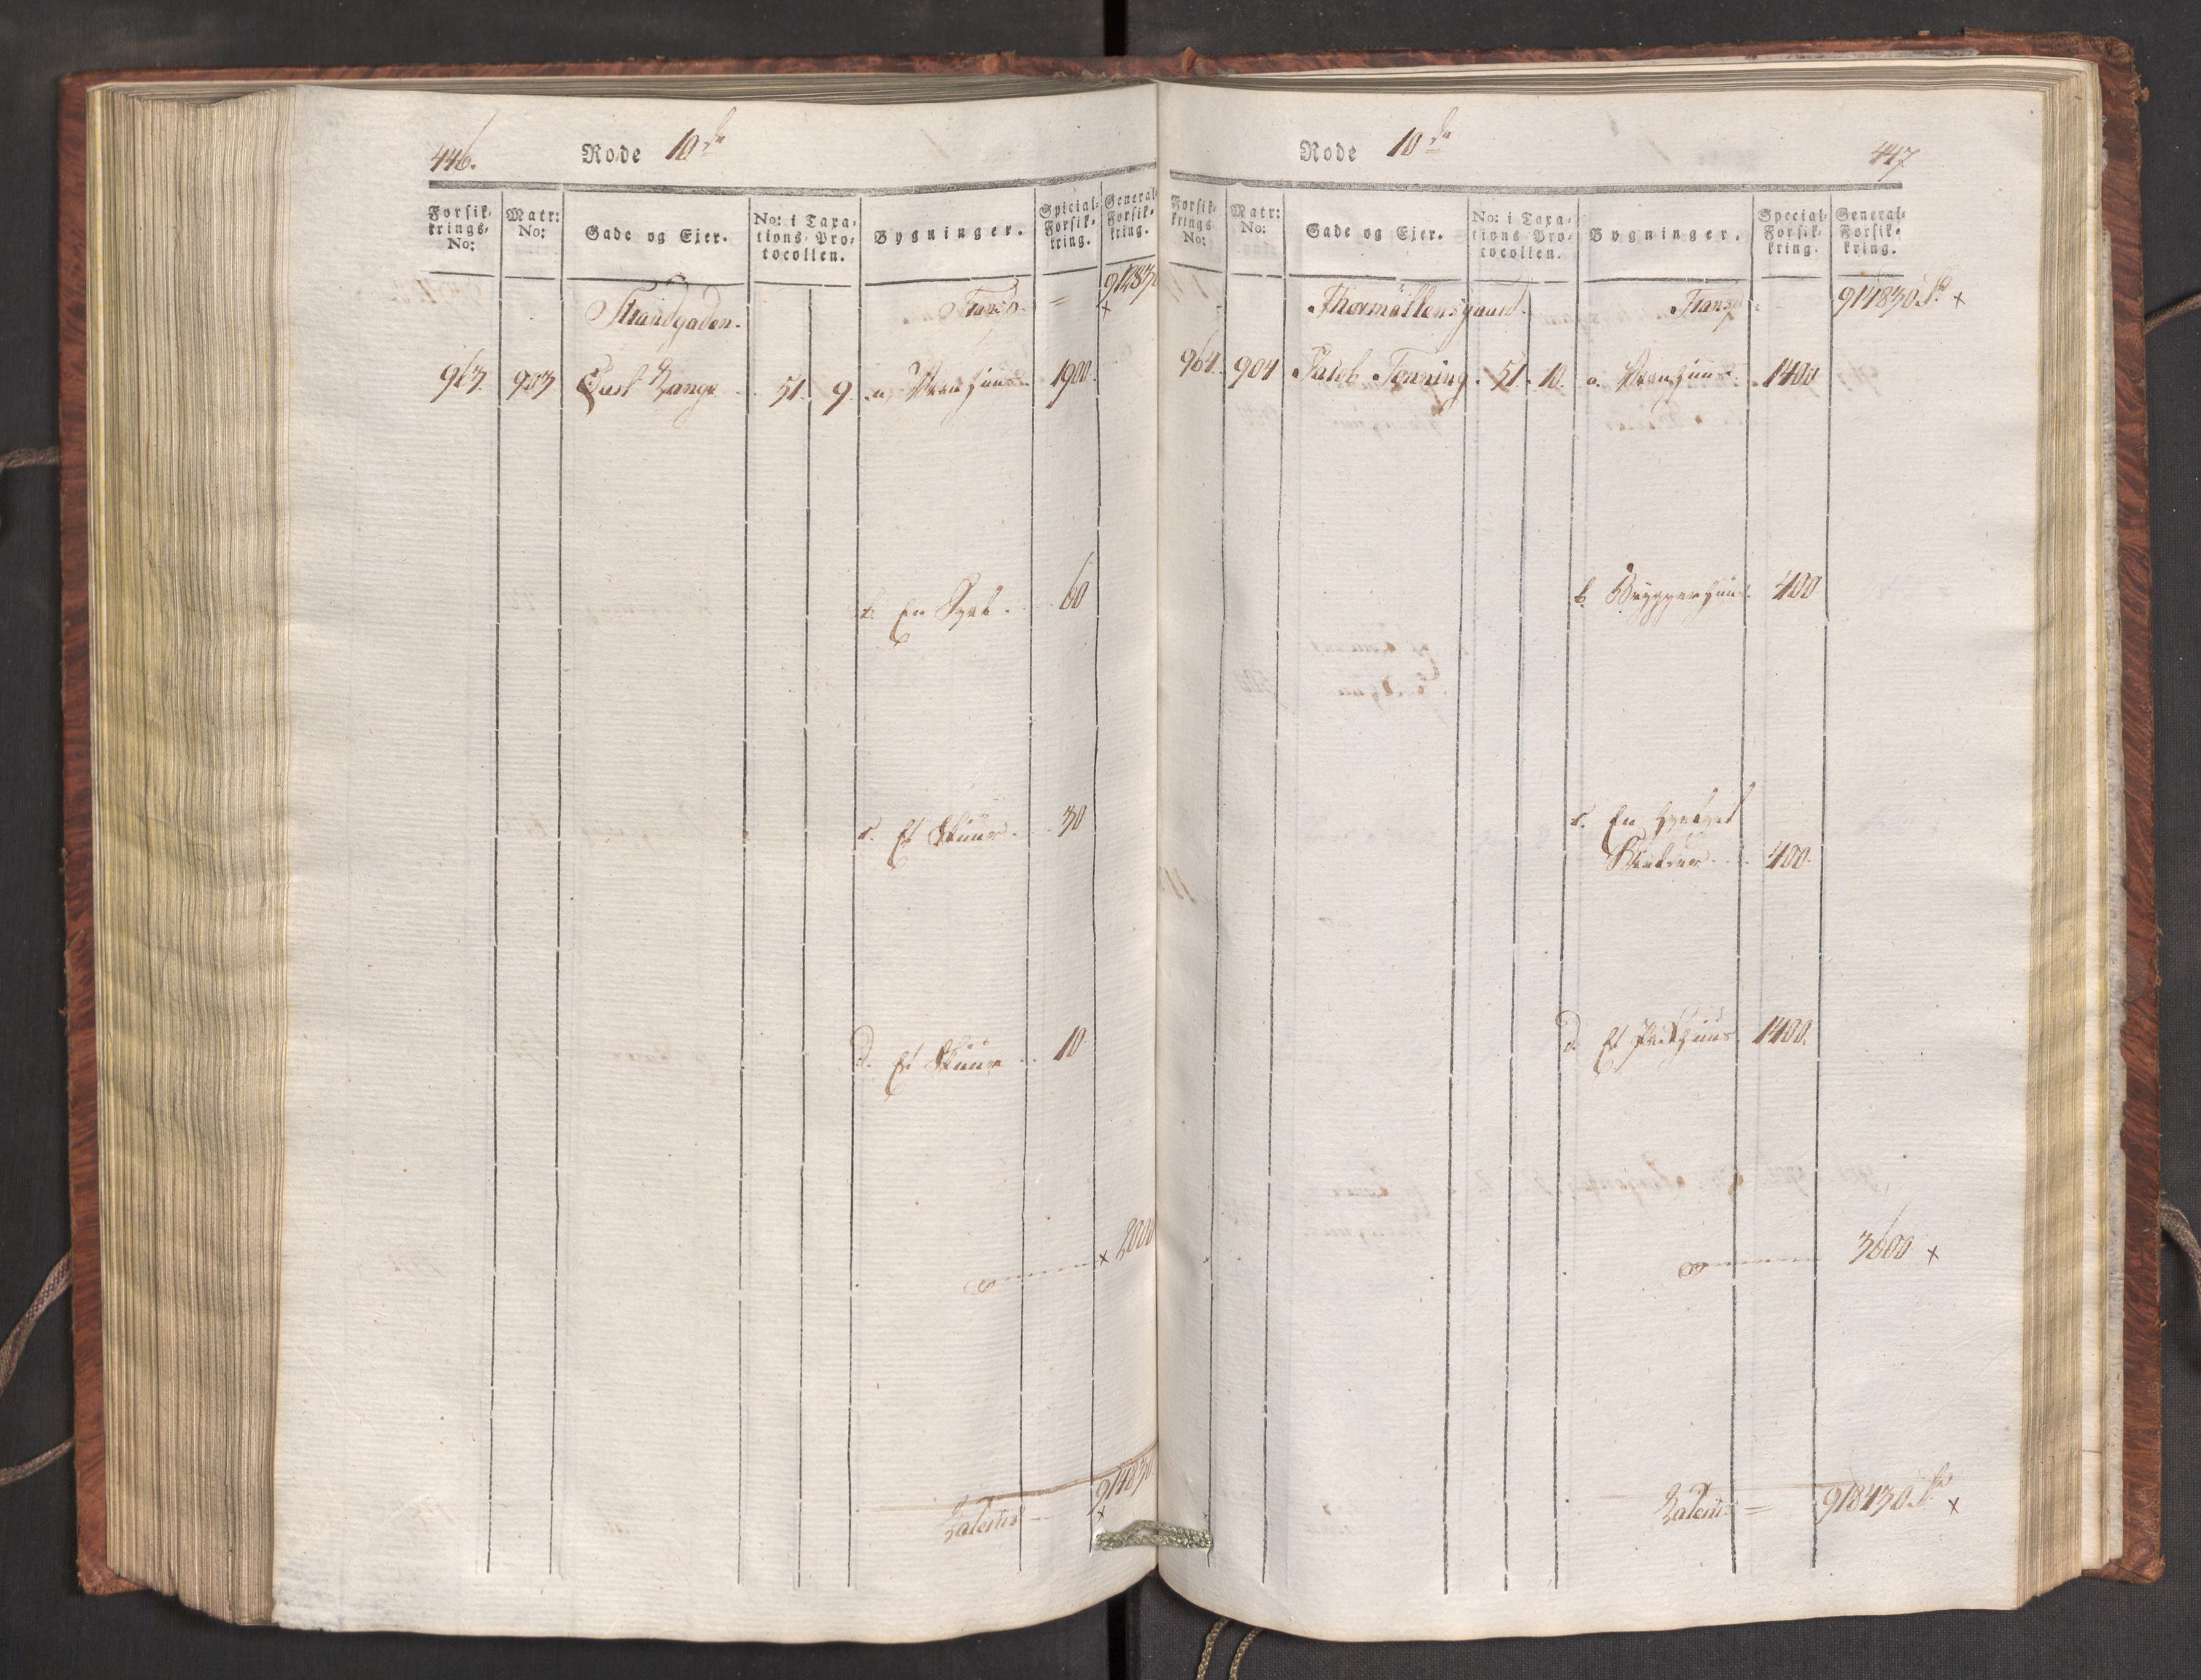 446.
Rode 10de
Forsik-
krings-
No:
Matr:
No:
Gade og Ejer.
No: i Taxa-
tions-Pro-
tocollen.
Bygninger.
Spicial-
Forsik-
kring.
General-
Forsik-
kring.
Strandgaden.
Transp. =
91283
x
963. 903 Lange . 51. 9. a, Vaanhuus. 1900.
b. En . 60
c. Et Skuur . . 30
d. Et Skuur . . 10
x 2000
Lateris =
91483
x
Rode 10de
447
Forsik-
krings
No:
Matr:
No:
Gade og Ejer.
No: i Taxa-
tions-Pro-
tocollen.
Bygninger.
Special-
Forsik-
kring.
General-
Forsik-
kring.
Thormöllensgaard.
Transp
914830 x
964. 904 Jacob Tonning . 51. 10. a. Vaanhuus. 1400
b. Bryggerhuus. 400
c. En
400.
d. Et 1400.
3600 x
Lateris =
918430 x